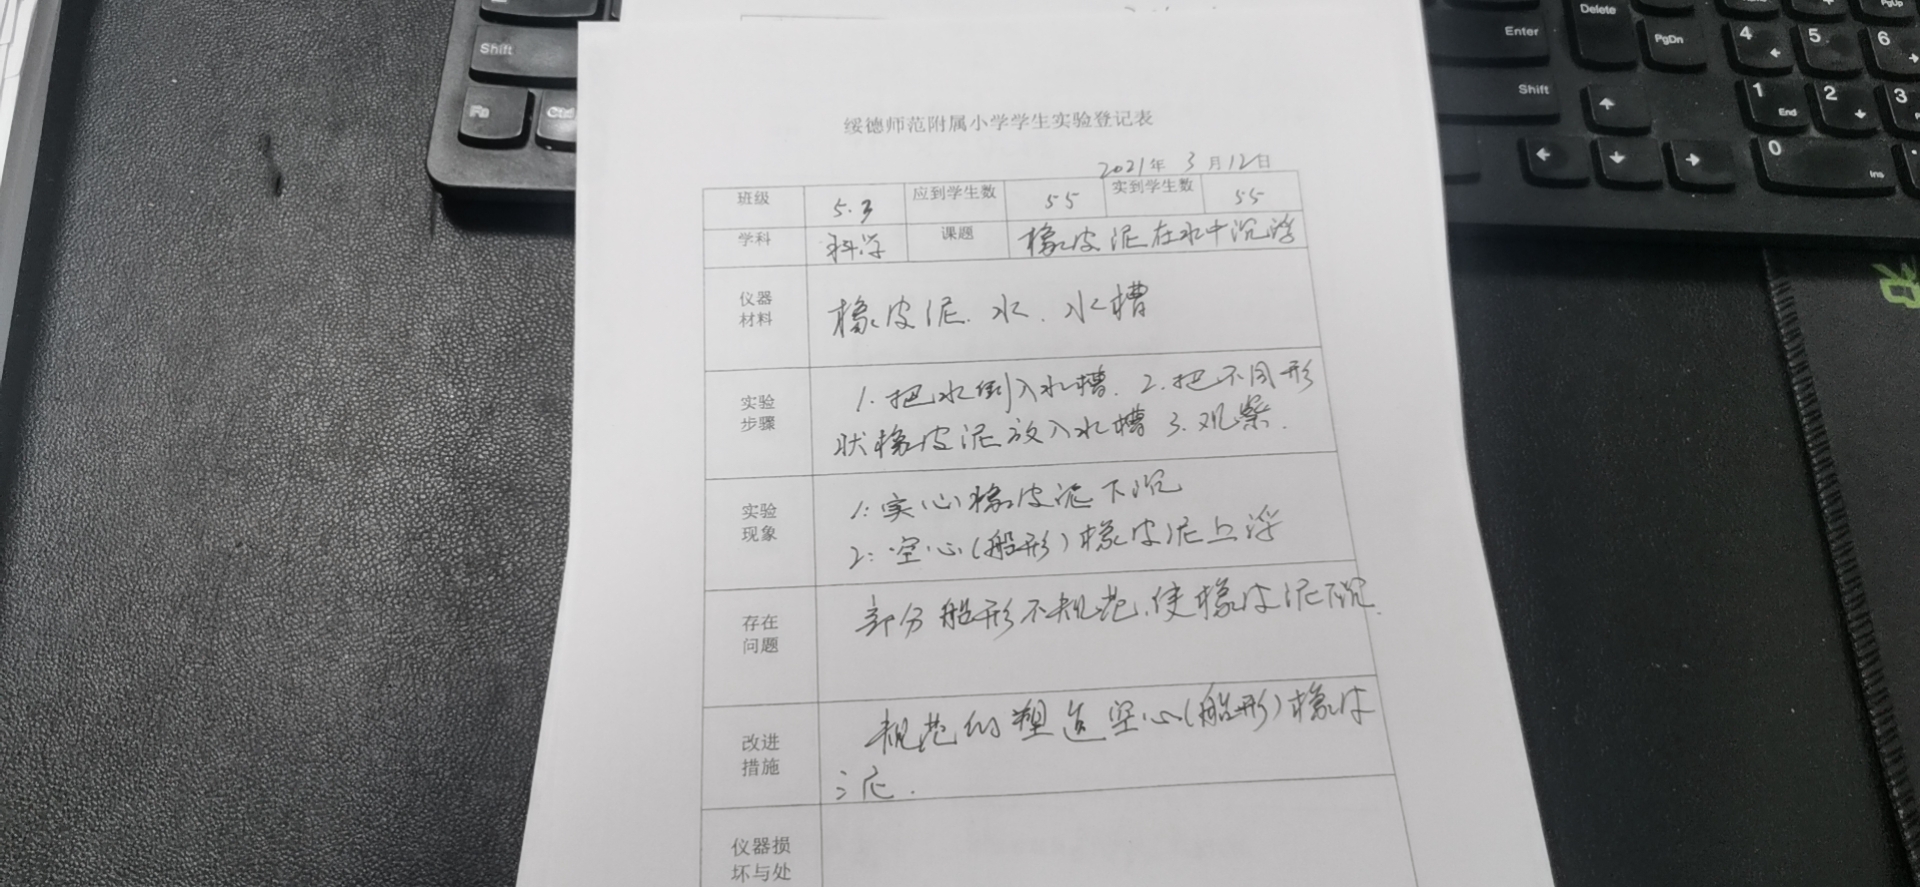 Shift
Fn
Ctrl
Delete
Enter
PgDn
PgUp
4
5
6
Shift
1
End
2
3
0
Ins
绥德师范附属小学学生实验登记表
2021年 3月12日
班级 5.3 应到学生数 55 实到学生数 55
学科 科学 课题 橡皮泥在水中沉浮
仪器
材料
橡皮泥、水、水槽
实验
步骤
1.把水倒入水槽. 2.把不同形
状橡皮泥放入水槽 3.观察.
实验
现象
1:实心橡皮泥下沉
2:空心(船形)橡皮泥上浮
存在
问题
部分船形不规范,使橡皮泥下沉.
改进
措施
规范的塑造空心(船形)橡皮
泥.
仪器损
坏与处